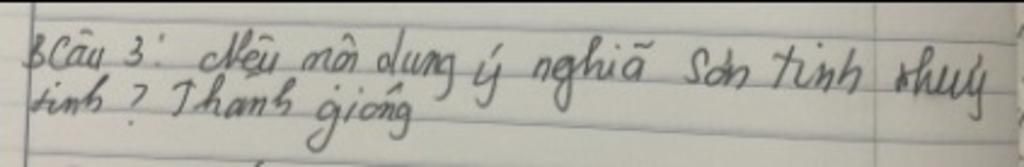 Câu 3: Nêu nôn dung ý nghiã Sơn tinh thuỷ
tinh? Thanh gióng